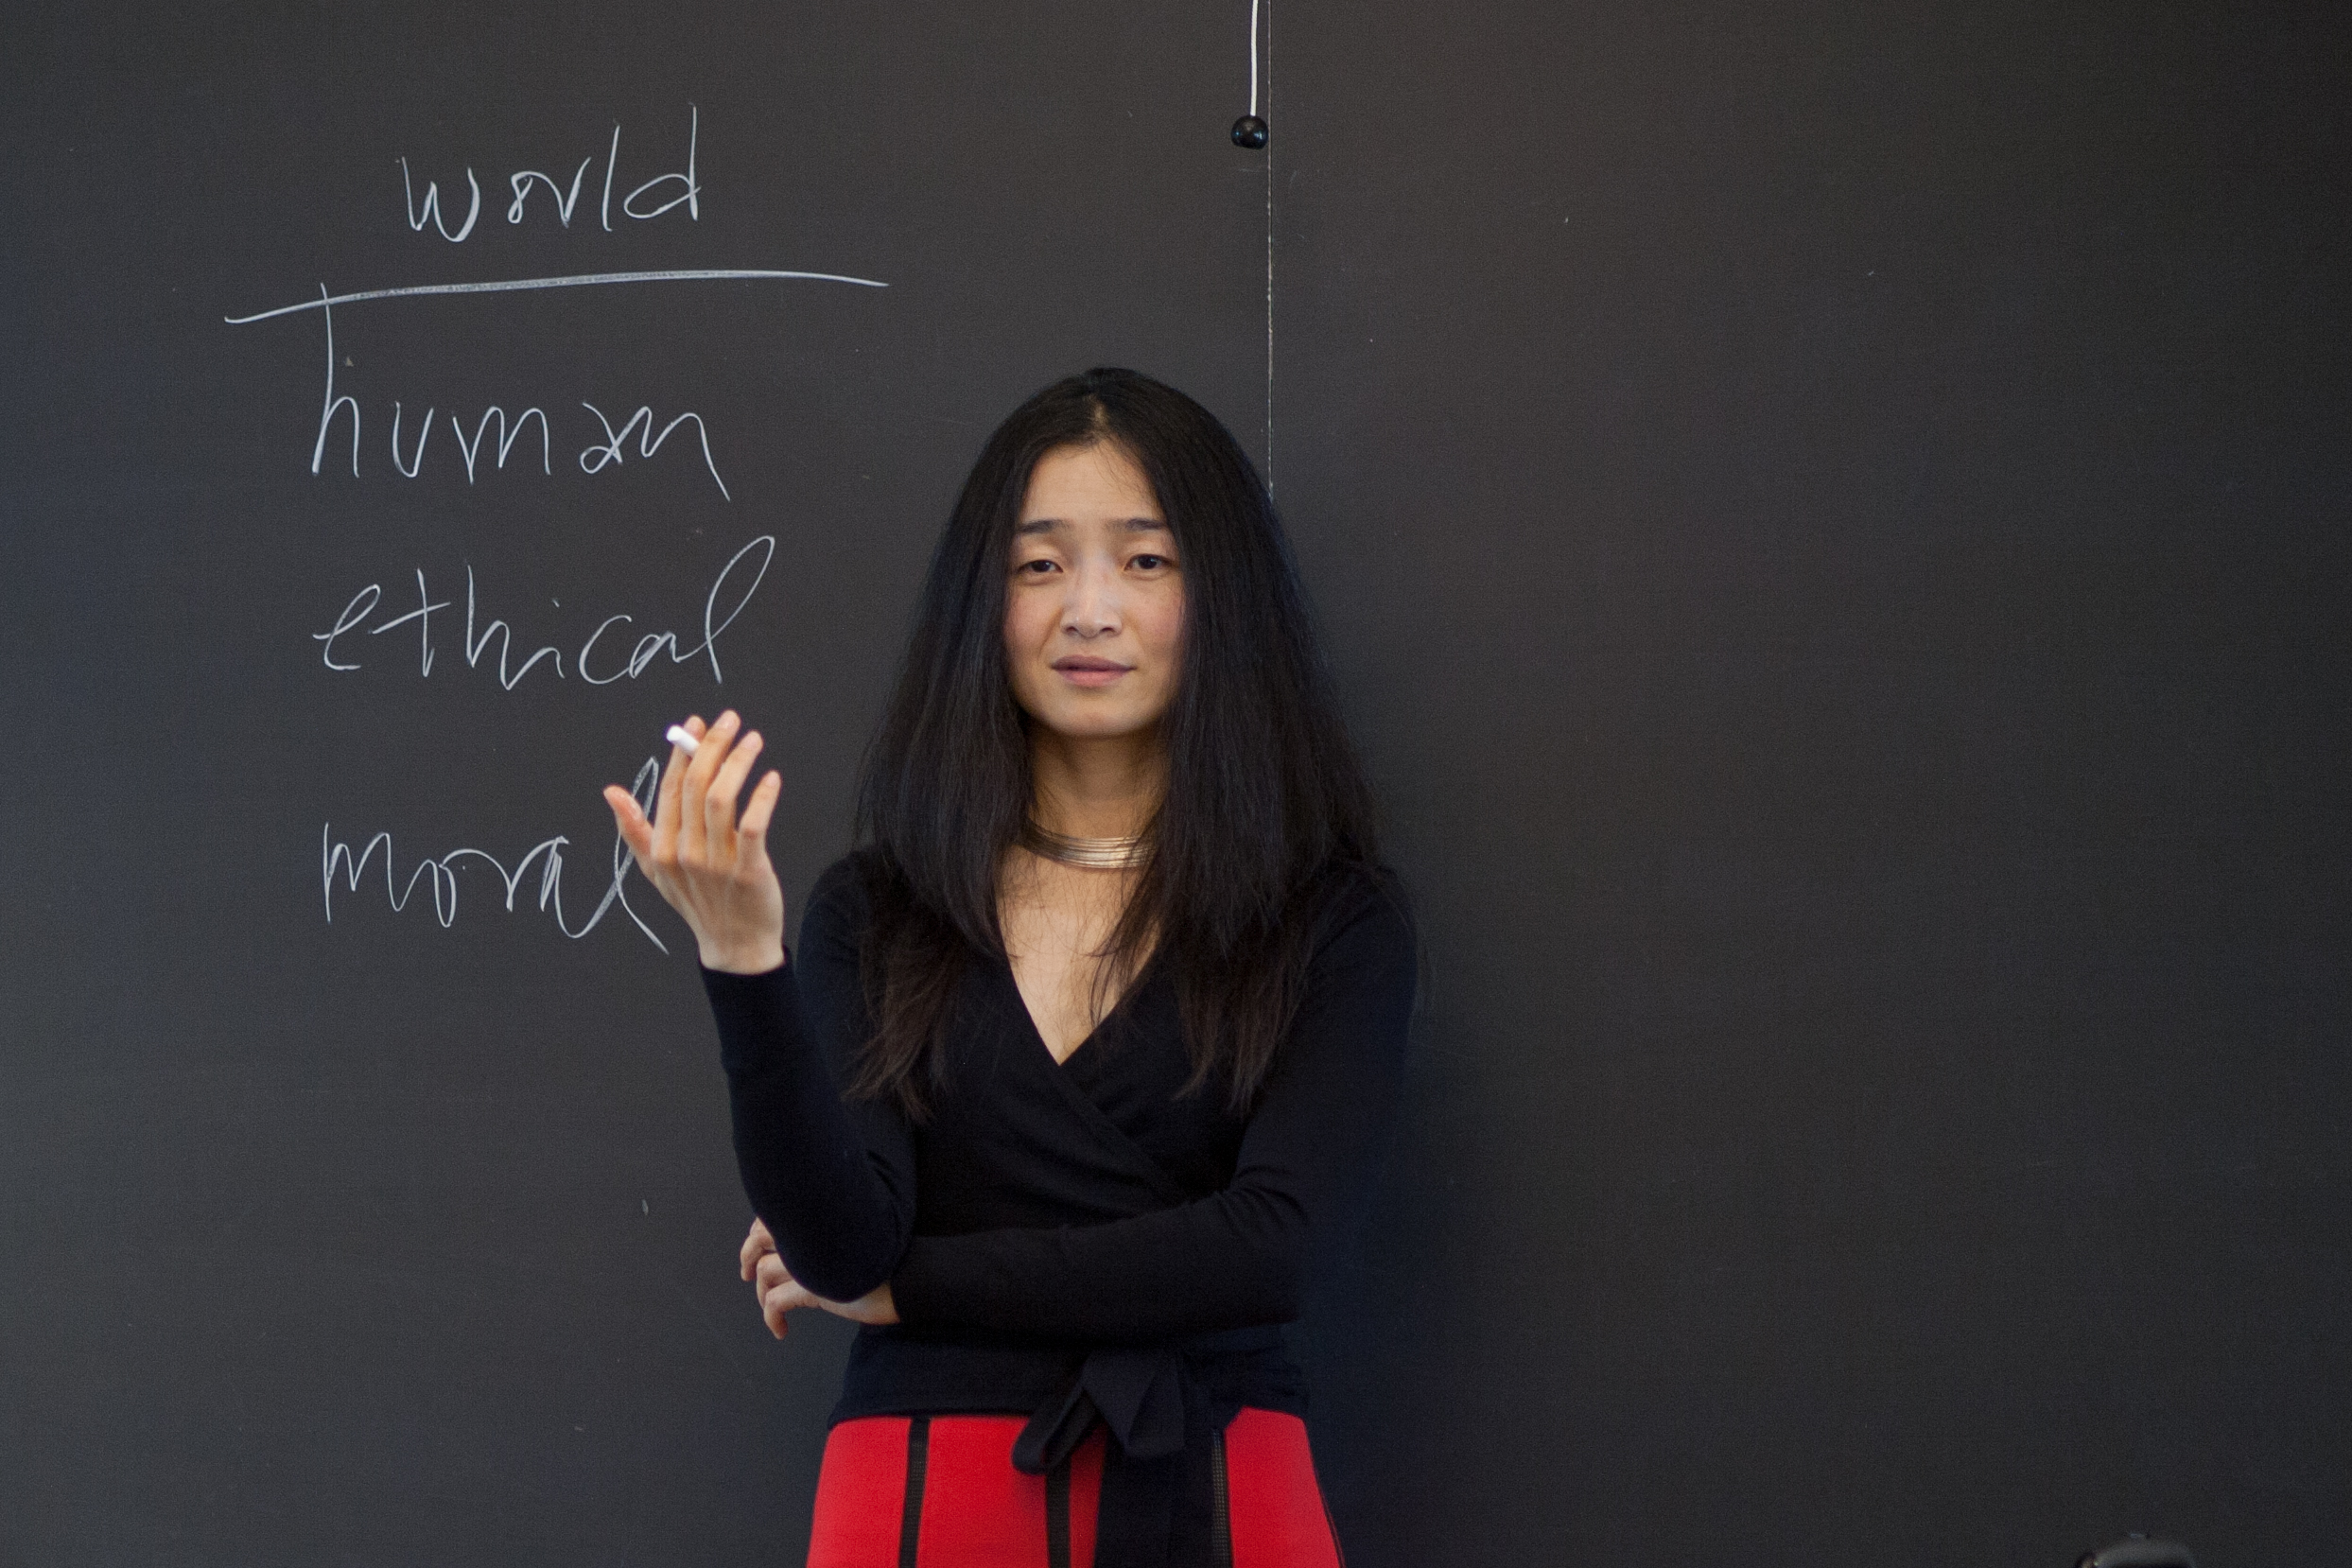 world
human
ethical
moral